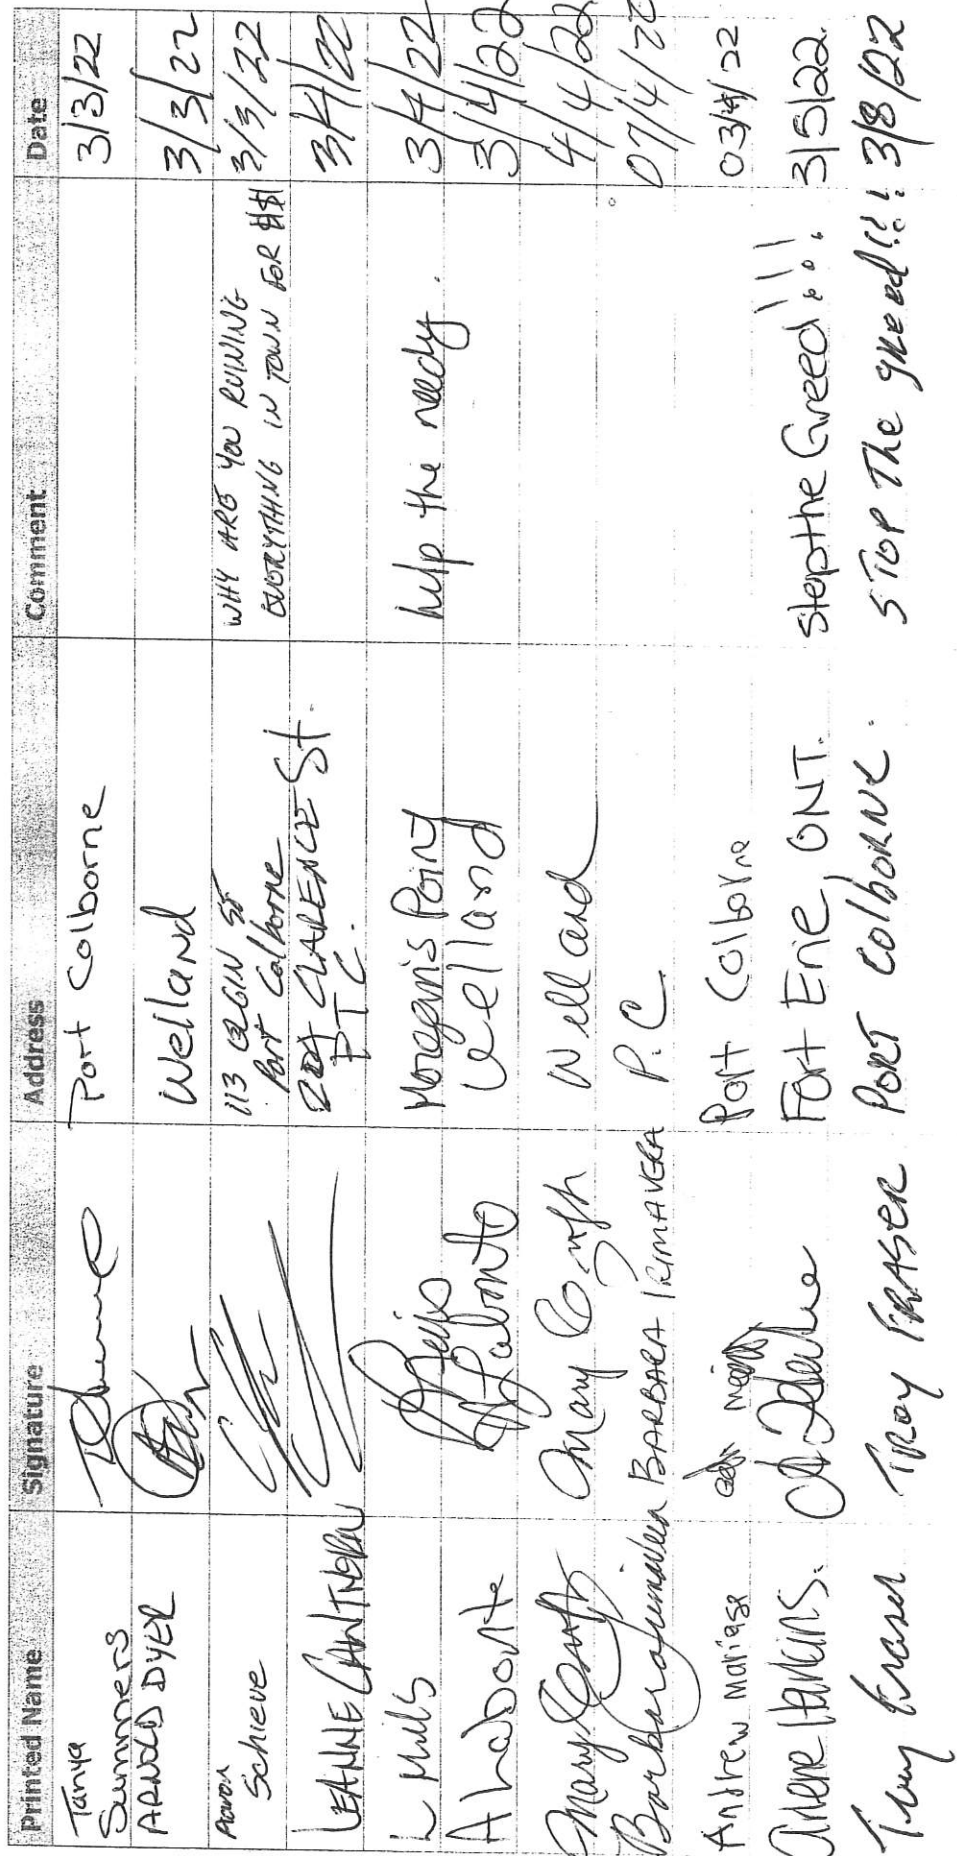 Printed Name Signature Address Comment Date
Tanya
Summers Port Colborne 3/3/22
ARNOLD DYER Welland 3/3/22
Aaron
Schieve 113 ELGIN ST
Port Colborne WHY ARE YOU RUINING
EVERYTHING IN TOWN FOR $$ 3/3/22
LEANNE CANTHERN CLARENCE St.
PT C. 3/4/22
L Mills Morgan's Point help the needy. 3/4/22
A LaDonte A LaDonte Welland 3/4/22
Mary Mary Welland 4/4/22
Barbara Primavera BARBARA PRIMAVERA P.C. 07/4/22
Andrew Mariage Port Colborne 03/4/22
Arlene Harkins. Fort Erie, ONT. Stop the Greed!!! 3/5/22.
Troy Fraser TROY FRASER PORT COLBORNE. STOP The greed!!! 3/8/22